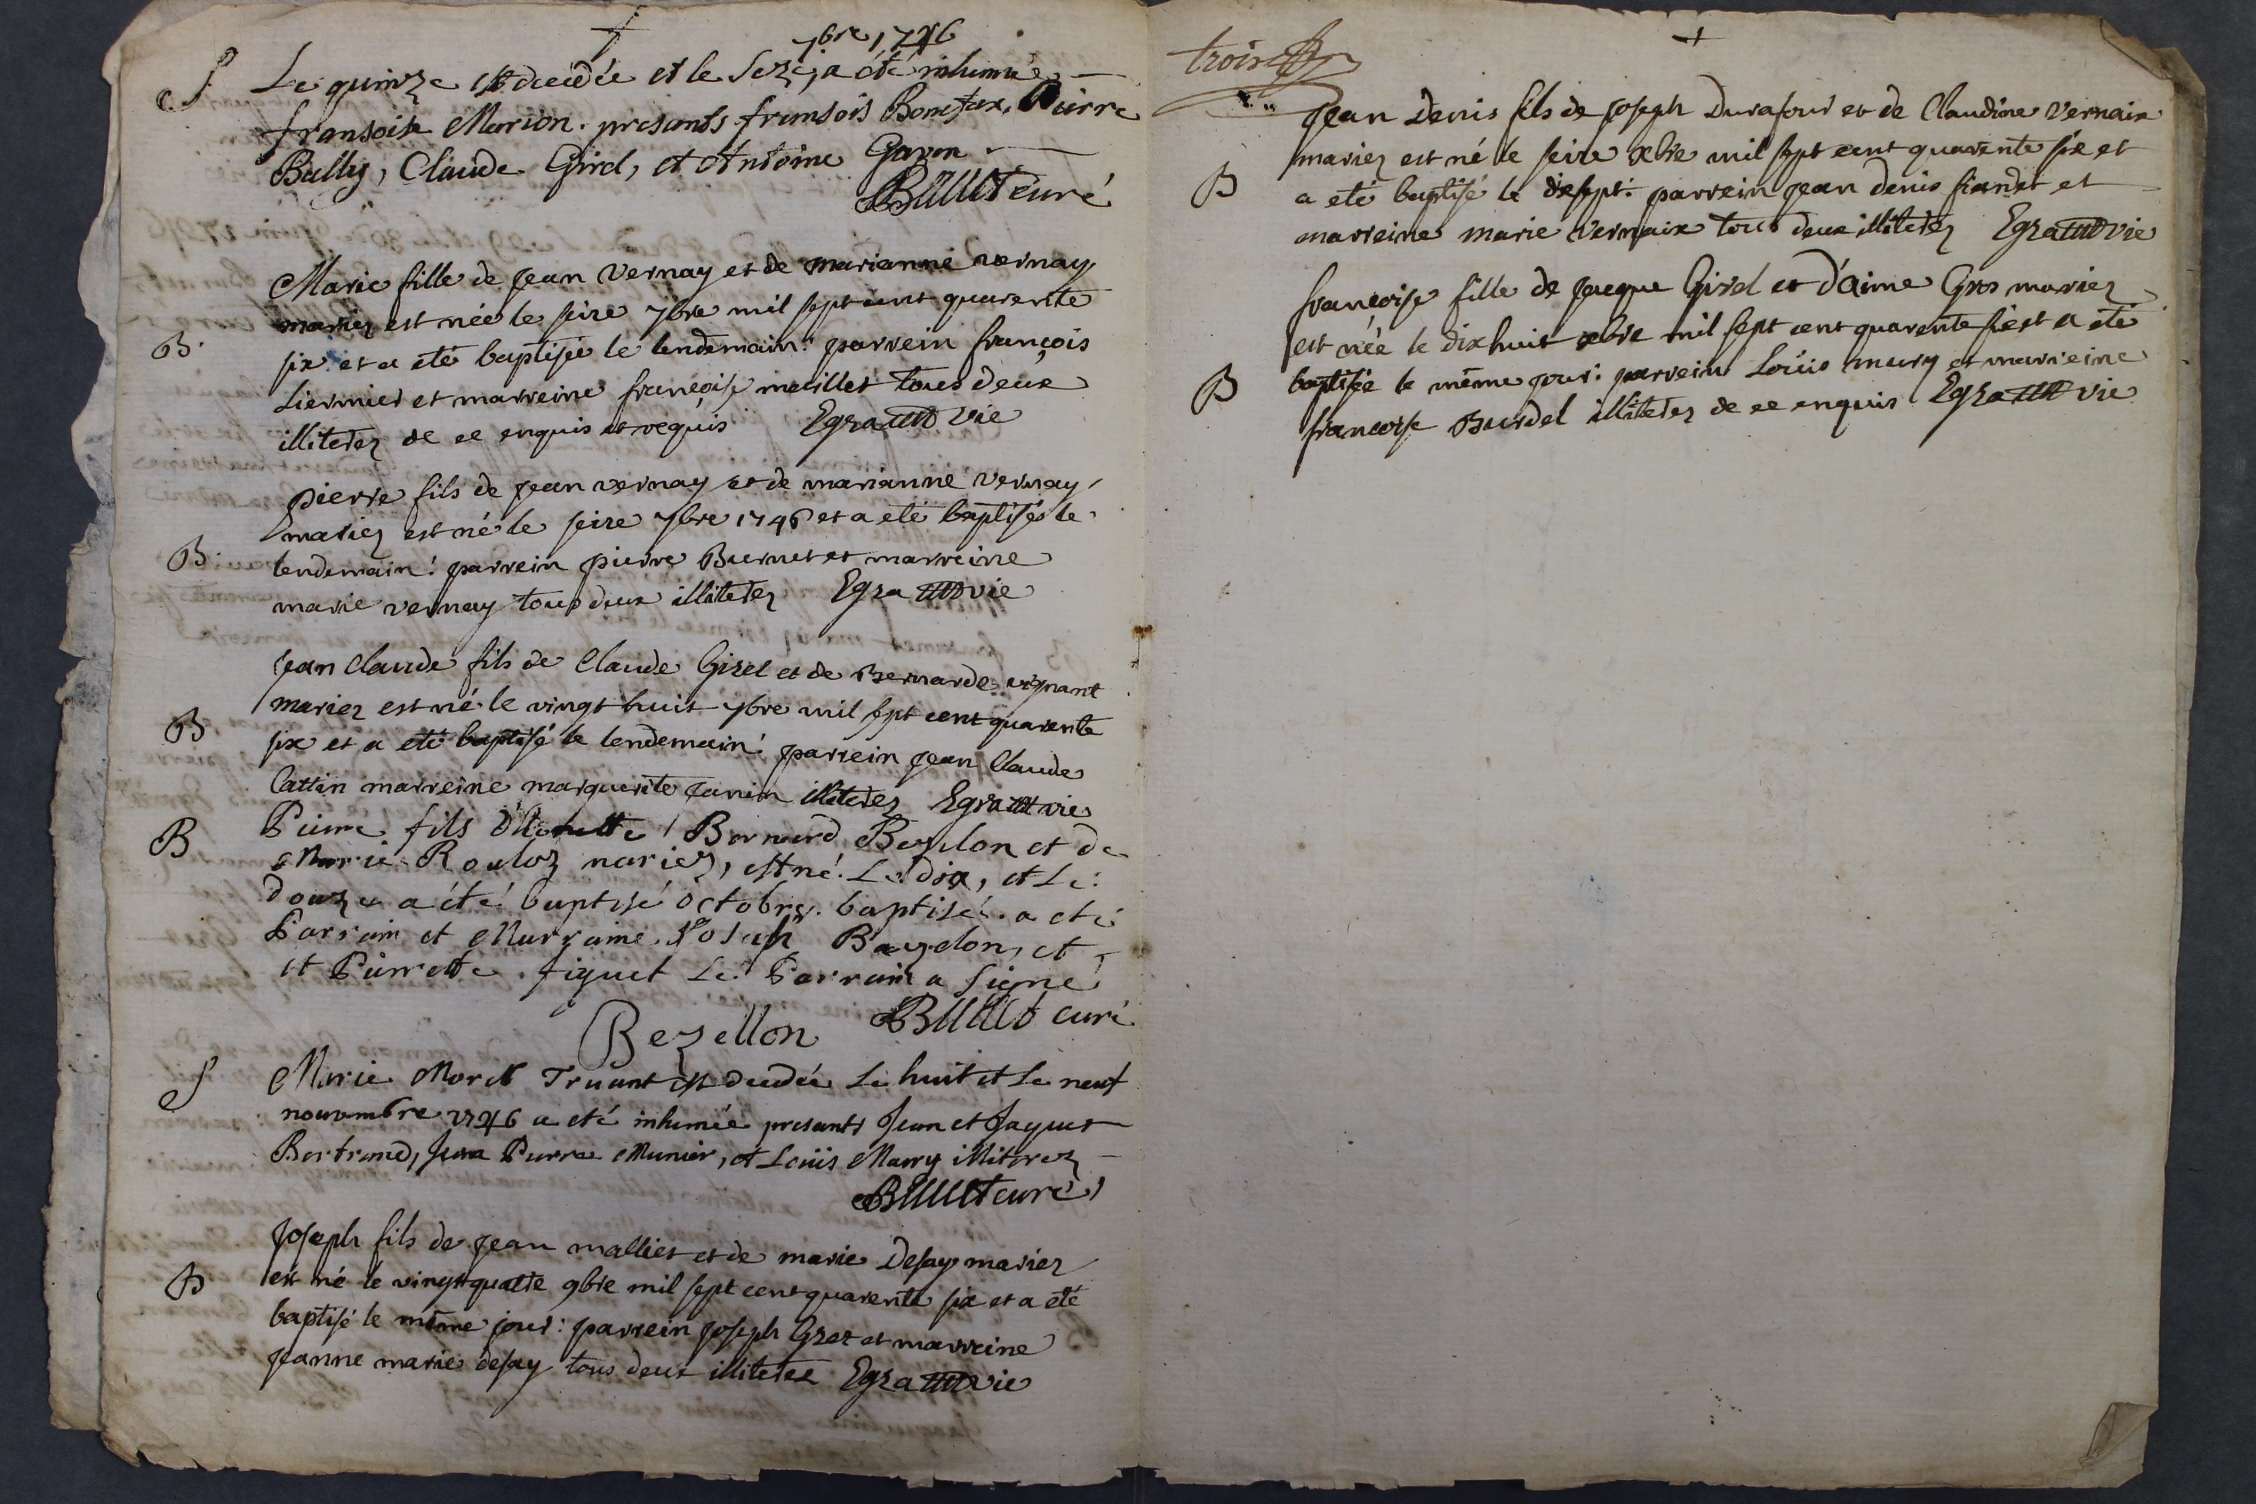 7bre 1746
S Le quinze est decedée et le seze, a été inhumée
fransoise Marion. presants fransois Bonefax, Pierre
Bully, Claude Girel, et Antoine Gavon
Bullit curé
Marie fille de jean vernay et de marianne vernay
mariez est née le seize 7bre mil sept cent quarente
B. six et a eté baptisée le lendemain: parrein françois
Liermier et marreine françoise meillet tous deux
illiterez de ce enquis et requis Egraz vie
pierre fils de jean vernay et de marianne vernay
mariez est né le seize 7bre 1746 et a eté baptisés le
B. lendemain: parrein pierre Burnet et marreine
marie vernay tous deux illiterez Egraz vie
jean claude fils de claude Girel et de Bernarde vignant
mariez est né le vingt huit 7bre mil sept cent quarente
B six et a eté baptisé le lendemain: parrein jean claude
Cattin marreine marguerite janin illiterez Egraz vie
B Pierre fils Bernard Bezelon et de
Marie Rouloz mariez, est né. Le dix, et Le:
douze a été baptisé octobre. baptisé. a eté
Parrain et Marraine. Joseph Bazelon, et
et Pierrette. figuet Le Parrain a signé
Bezellon Bullit curé
S Marie Morel Truant est decedée Le huit et Le neuf
nouvembre 1746 a eté inhumée presants Jean et Jaques
Bertrand, Jean Pierre Munier, et Louis Marry illiterez
Bullit curé
Joseph fils de jean malliet et de marie Desay mariez
B est né le vingt quatre 9bre mil sept cent quarente six et a eté
baptisé le même jour: parrein joseph Grez et marreine
jeanne marie desay tous deux illiterez Egraz vie
trois
jean Denis fils de joseph Durafour et de Claudine vernaix
mariez est né le seize xbre mil sept cent quarente six et
B a eté baptisé le dix sept: parrein jean denis fiandet et
marreine marie vernaix tous deux illiterez Egraz vie
françoise fille de jacque Girel et d'aime Gros mariez
est née le dix huit xbre mil sept cent quarente six et a eté
B baptisée le même jour: parrein Louis mary et marreine
francoise Burdel illiterez de ce enquis Egraz vie